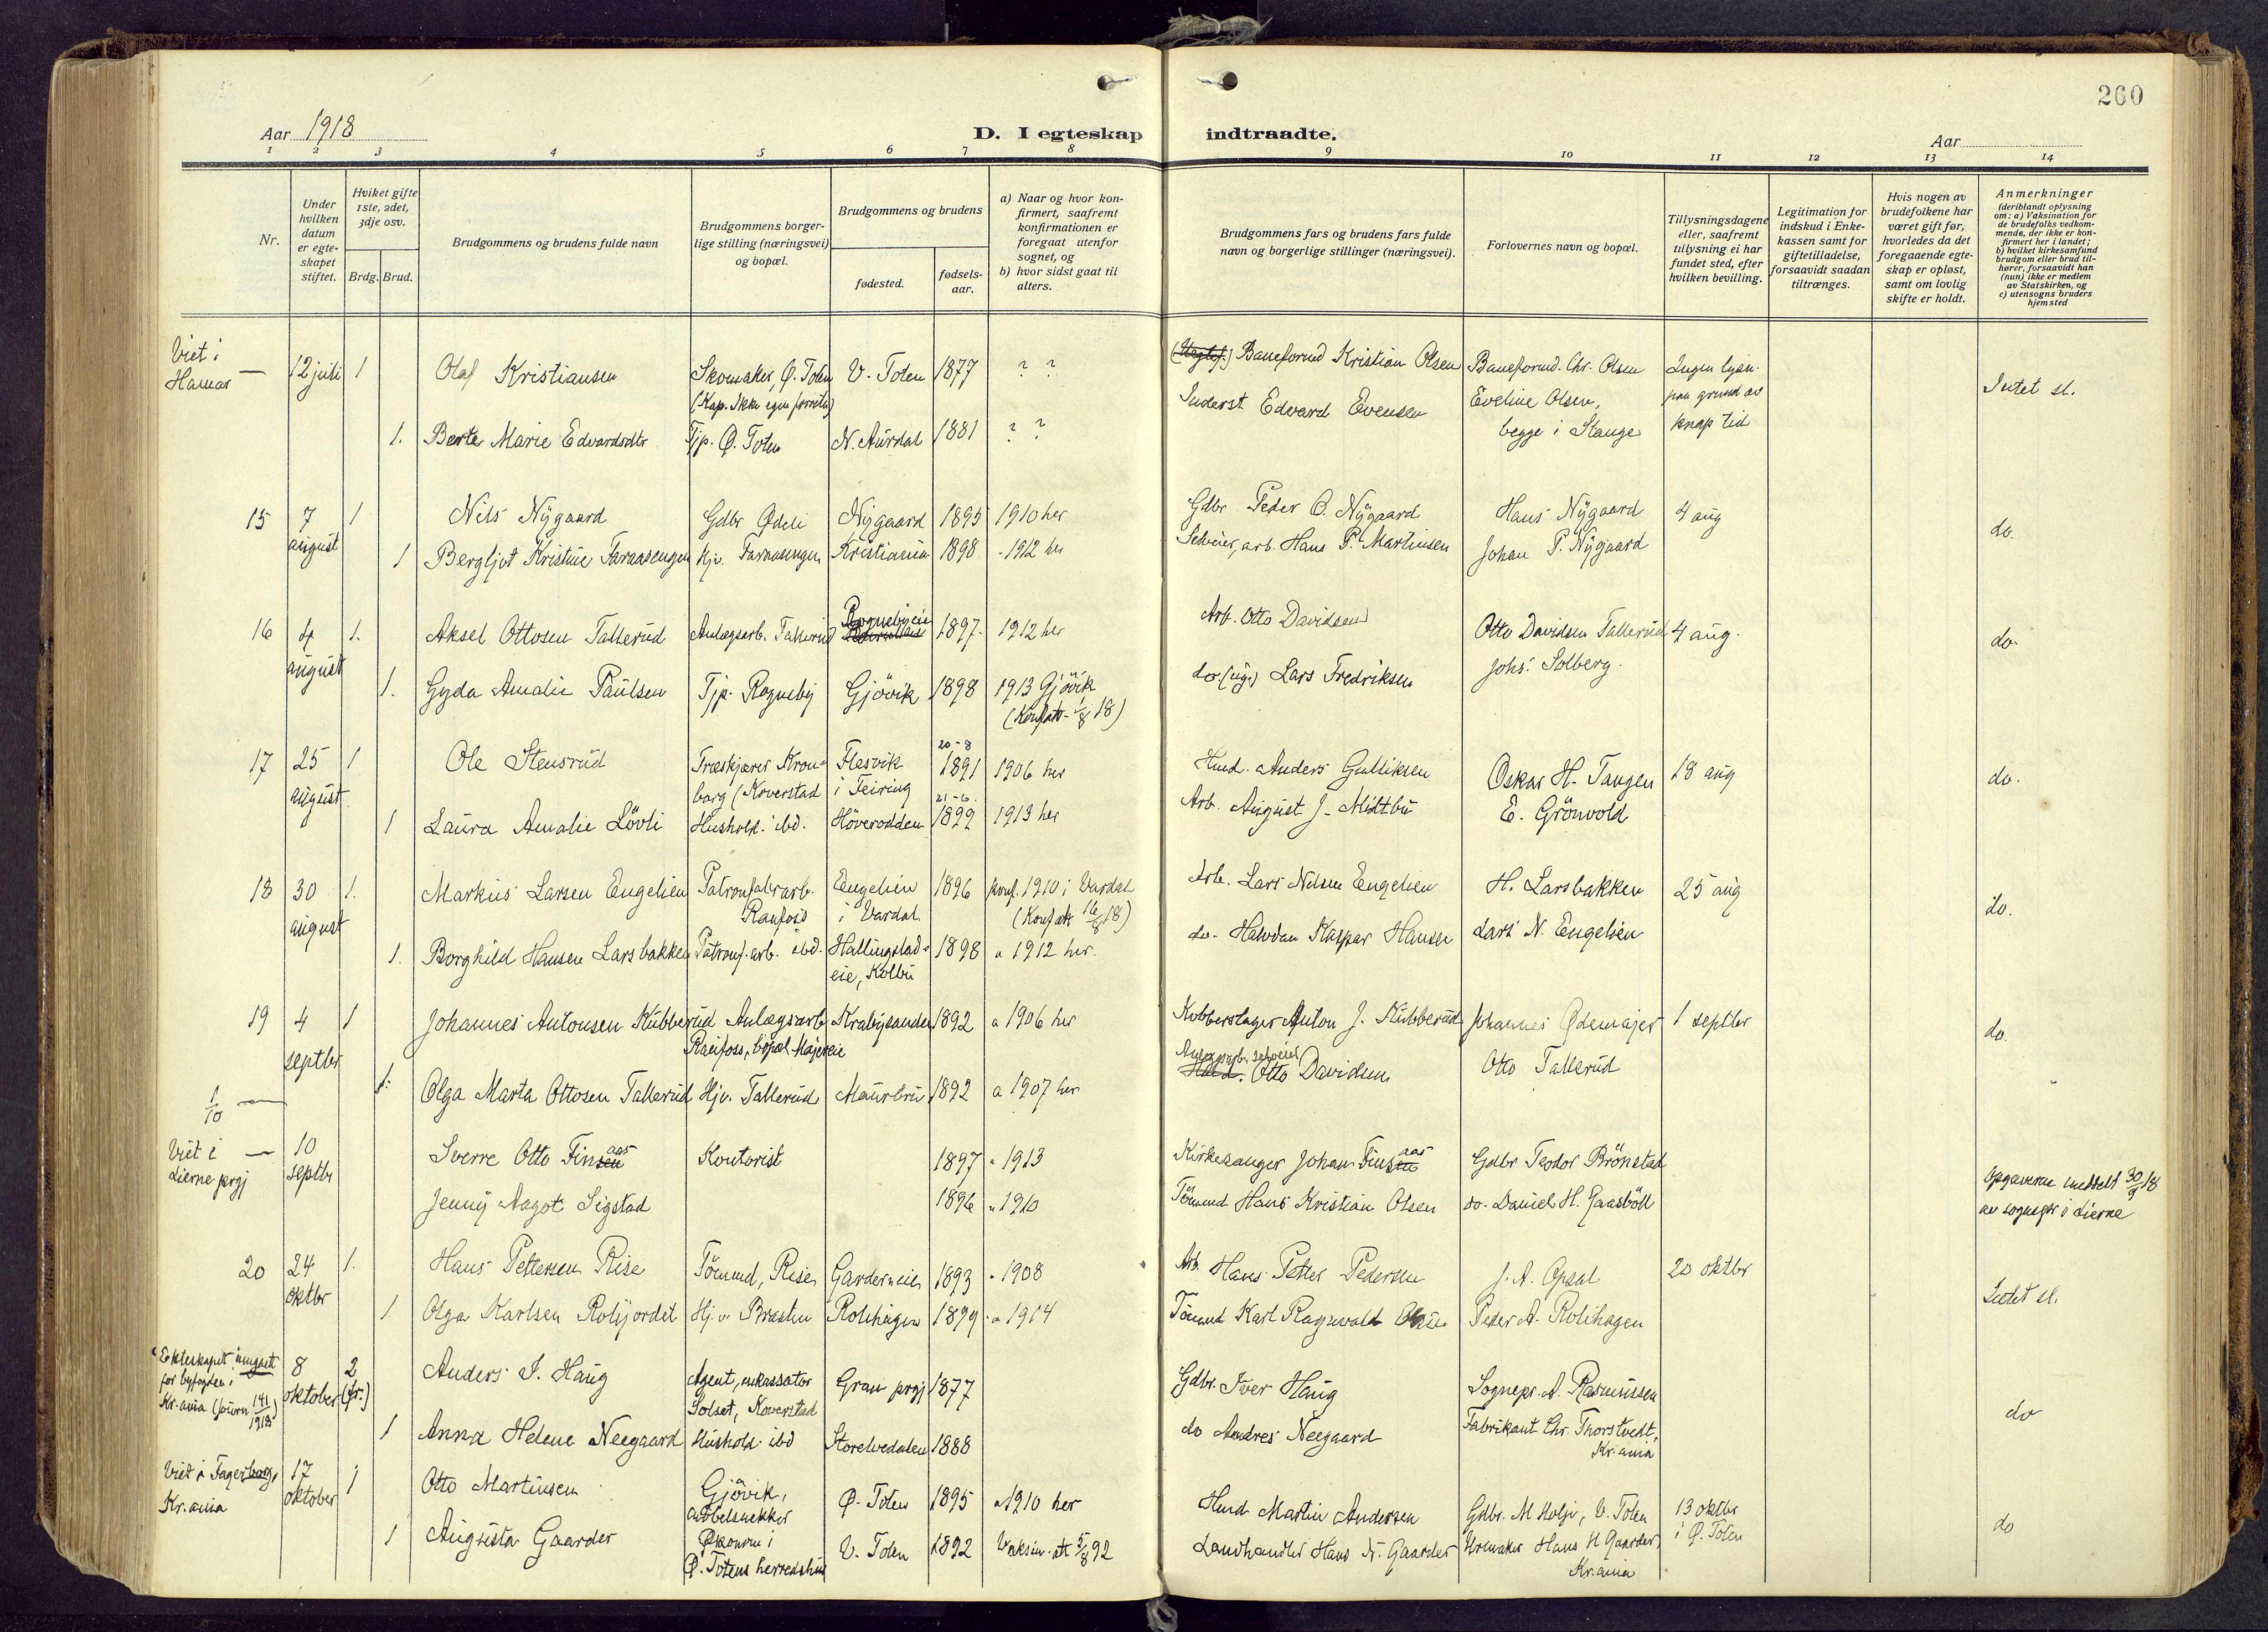 260
Aar 1918
D. I egteskap indtraadte.
Aar
1 2 3 4 5 6 7 8 9 10 11 12 13 14
Nr.
Under hvilken datum er egte-skapet stiftet.
Hviket gifte 1ste, 2det, 3dje osv.
Brdg. Brud.
Brudgommens og brudens fulde navn
Brudgommens borger-lige stilling (næringsvei) og bopæl.
Brudgommens og brudens
fødested.
fødsels-aar.
a) Naar og hvor kon-firmert, saafremt konfirmationen er foregaat utenfor sognet, og
b) hvor sidst gaat til alters.
Brudgommens fars og brudens fars fulde navn og borgerlige stillinger (næringsvei).
Forlovernes navn og bopæl.
Tillysningsdagene eller, saafremt tillysning ei har fundet sted, efter hvilken bevilling.
Legitimation for indskud i Enke-kassen samt for giftetilladelse, forsaavidt saadan tiltrænges.
Hvis nogen av brudefolkene har været gift før, hvorledes da det foregaaende egte-skap er opløst, samt om lovlig skifte er holdt.
Anmerkninger
(deriblandt oplysning om: a) Vaksination for de brudefolks vedkom-mende, der ikke er kon-firmert her i landet; b) hvilket kirkesamfund brudgom eller brud til-hører, forsaavidt han (hun) ikke er medlem av Statskirken, og c) utensogns bruders hjemsted
Viet i Hamar — 12 juli 1 Olaf Kristiansen Skomaker Ø. Toten V. Toten 1877 ? ? Baneformd Kristian Olsen Baneformd. Chr. Olsen Ingen lysn. paa grund av knap tid Intet sl.
1. Berte Marie Edvardsdtr Tjp. Ø. Toten N. Aurdal 1881 ? ? Inderst Edvard Evensen Eveline Olsen, begge i Stange
15 7 august 1 Nils Nygaard Gdbr Ødeli Nygaard 1895 1910 her Gdbr Peder O. Nygaard Hans Nygaard 4 aug do.
1 Bergljot Kristine Faraasengen Hjv. Faraasengen Kristiania 1898 - 1912 her Selveier, arb. Hans P. Martinsen Johan P. Nygaard
16 4 august 1. Aksel Ottosen Tallerud Anlægsarb. Tallerud Rognebyeie 1897. 1912 her Arb. Otto Davidsen Otto Davidsen Tallerud 4 aug. do.
1. Gyda Amalie Paulsen Tjp. Rogneby Gjøvik 1898 1913 Gjøvik (Konfatt. 1/8 18) do (ug.) Lars Fredriksen Johs. Solberg.
17 25 august 1 Ole Stensrud Træskjærer Kronborg (Koverstad Flesvik i Feiring 20-8 1891 1906 her Hmd. Anders Gulliksen Oskar H. Tangen 18 aug do.
1 Laura Amalie Lövli Hushold. ibd. Höverodden 21-6. 1899 1913 her Arb. August J. Midtbu E. Grönvold
18 30 august 1. Markus Larsen Engelien Patronfabrarb. Raufoss Engelien i Vardal 1896 konf. 1910 i Vardal (Konfatt 16/8 18) Arb. Lars Nilsen Engelien H. Larsbakken 25 aug do.
1. Borghild Hansen Larsbakken Patronf.arb. ibd. Hallingstad-eie, Kolbu 1898 a 1912 her. do. Halvdan Kaspar Hansen Lars N. Engelien
19 4 septbr 1 Johannes Antonsen Kubberud Anlægsarb Raufoss, bopæl Majereie Krabysanden 1892 a 1906 her Kobberslager Anton J. Kubberud Johannes Ødemajer 1 septbr do.
1. Olga Marta Ottosen Tallerud Hjv. Tallerud Maurbru 1892 a 1907 her Anlægsarb. selveier Otto Davidsen Otto Tallerud
1/10 —
Viet i Lierne prgj — 10 septbr Sverre Otto Finsaas Kontorist 1897 " 1913 Kirkesanger Johan Finsaas Gdbr Teodor Brönstad Opgaverne meddelt 30/9 18 av sognepr i Lierne
Jenny Aagot Sigstad 1896 " 1910 Tömmd Hans Kristian Olsen do. Daniel H. Gaasböll
20 24 oktbr 1. Hans Pettersen Rise Tömmd, Rise Garderneie 1893 " 1908 Arb. Hans Petter Pedersen J. A. Opsal 20 oktbr Intet sl.
1. Olga Karlsen Rohjordet Hj.v. Brasten Rohhagen 1899 a 1914 Tömmd Karl Ragnvald Olsen Peder A. Rohhagen
Ekteskapet inngaat for byfogden i Kr.ania (journ 141/1918) 8 oktober 2 (fr.) Anders I. Haug Agent, inkassator Solset, Koverstad Gran prgj 1877 Gdbr. Iver Haug Sognepr. A. Rasmussen do
1 Anna Helene Neegaard Hushold. ibd Storelvedalen 1888 do Andres Neegaard Fabrikant Chr. Thorstvedt, Kr.ania
Viet i Fagerborg, Kr.ania 17 oktober 1 Otto Martinsen Gjøvik, møbelsnekker Ø. Toten 1895 a 1910 her Hmd Martin Andersen Gdbr. M Holje, V. Toten 13 oktbr i Ø. Toten do
1 Augusta Gaarder Økonom i Ø. Totens herredshus V. Toten 1892 Vaksin.att 5/8 92 Landhandler Hans N. Gaarder Urmaker Hans H Gaarder, Kr.ania